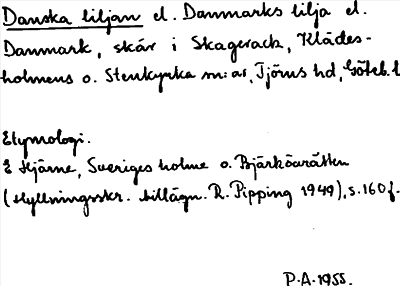 Danska liljan el. Danmarks lilja el.
Danmark, skär i Skagerack, Klädes-
holmens o. Stenkyrka sn:ar, Tjörns hd, Göteb. l
Etymologi.
E Hjärne, Sveriges holme o. Bjärköarätten
(Hyllningsskr. tillägn. R. Pipping 1949), s. 160 f.
P.A. 1955.